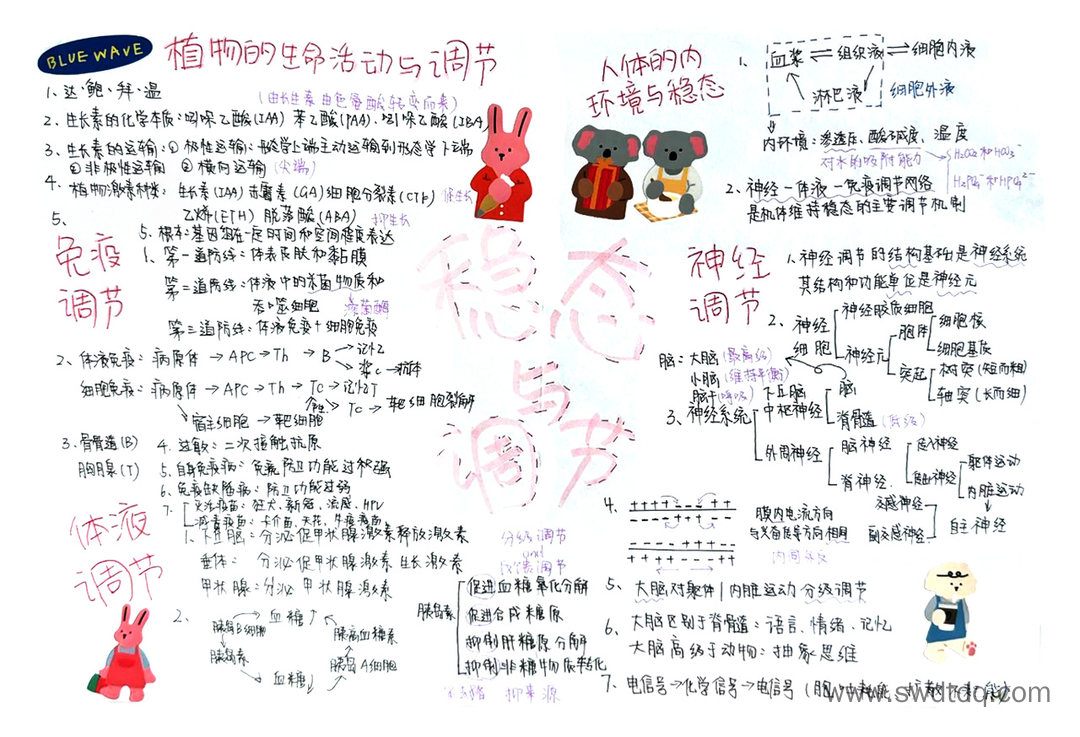 BLUE WAVE
植物的生命活动与调节
1、达·鲍·拜·温
(由长生素由色氨酸转变而来)
2、生长素的化学本质:吲哚乙酸(IAA) 苯乙酸(PAA)、吲哚乙酸(IBA)
3、生长素的运输:① 极性运输:形态学上端主动运输到形态学下端
②非极性运输 ③横向运输(尖端)
4、植物激素种类:生长素(IAA) 赤霉素(GA) 细胞分裂素(CTK) 促生长
乙烯(ETH) 脱落酸(ABA) 抑生长
5.
5、根本:基因组在一定时间和空间程度表达
人体的内
环境与稳态
1、
血浆⇌组织液⇌细胞内液
淋巴液
细胞外液
内环境:渗透压、酸碱度、温度
对水的吸附能力
2、神经-体液-免疫调节网络
是机体维持稳态的主要调节机制
稳态
与
调节
免疫
调节
1、第一道防线:体表皮肤和黏膜
第二道防线:体液中的杀菌物质和
吞噬细胞 溶菌酶
第三道防线:体液免疫+细胞免疫
2、体液免疫:病原体→APC→Th→B→记忆
浆c→抗体
细胞免疫:病原体→APC→Th→Tc→记忆T
Tc→靶细胞裂解
宿主细胞→靶细胞
3、骨骨遀(B)
胸腺(T)
4、过敏:二次接触抗原
5、自身免疫病:免疫防卫功能过强
6、免疫缺陷病:防卫功能过弱
7、
灭活疫苗:狂犬、新冠、流感、HPV
减毒疫苗:卡介苗、天花、牛痘
神经
调节
1、神经调节的结构基础是神经系统
其结构和功能单位是神经元
2、
神经
细胞
神经胶质细胞
神经元
胞体
细胞核
细胞基质
突起
树突(短而粗)
轴突(长而细)
脑:大脑(最高级)
小脑(维持平衡)
脑干(呼吸)
下丘脑
3、神经系统
中枢神经
脑
脊骨遀(低级)
外周神经
脑神经
脊神经
传入神经
传出神经
躯体运动
内脏运动
交感神经
副交感神经
自主神经
4、
++++ ++
---- ++--
膜内电流方向
与兴奋传导方向相同
5、大脑对躯体|内脏运动分级调节
6、大脑区别于脊骨遀:语言、情绪、记忆
大脑高级于动物:抽象思维
7、电信号→化学信号→电信号
体液
调节
1、下丘脑:分泌促甲状腺激素释放激素
垂体:分泌促甲状腺激素 生长激素
甲状腺:分泌甲状腺激素
分级调节
and
反馈调节
2、
血糖↑
胰岛B细胞
胰岛素
血糖↓
胰岛A细胞
胰高血糖素
胰岛素
促进血糖氧化分解
促进合成糖原
抑制肝糖原分解
抑制非糖物质转化
抑来源
www.swdtdq.com